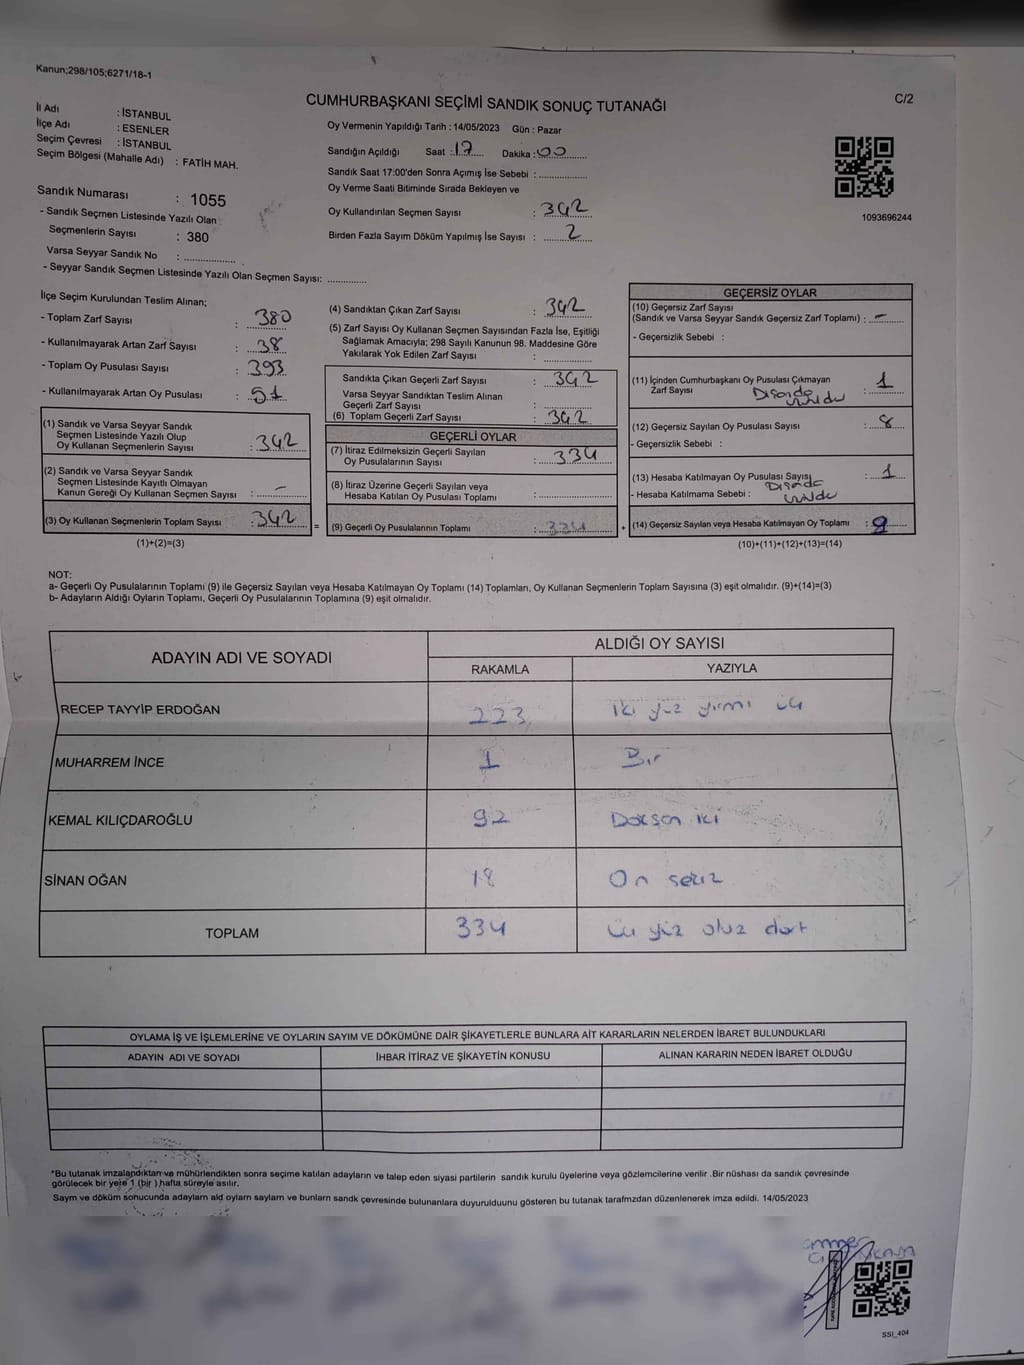 Kanun;298/105;6271/18-1
C/2
CUMHURBAŞKANI SEÇİMİ SANDIK SONUÇ TUTANAĞI
İl Adı : İSTANBUL
İlçe Adı : ESENLER
Seçim Çevresi : İSTANBUL
Seçim Bölgesi (Mahalle Adı) : FATİH MAH.
Sandık Numarası : 1055
- Sandık Seçmen Listesinde Yazılı Olan
Seçmenlerin Sayısı : 380
Varsa Seyyar Sandık No : ..................
- Seyyar Sandık Seçmen Listesinde Yazılı Olan Seçmen Sayısı: ..............
Oy Vermenin Yapıldığı Tarih : 14/05/2023 Gün : Pazar
Sandığın Açıldığı Saat : 17 Dakika : 00
Sandık Saat 17:00'den Sonra Açımış İse Sebebi : .................
Oy Verme Saati Bitiminde Sırada Bekleyen ve
Oy Kullandırılan Seçmen Sayısı : 342
Birden Fazla Sayım Döküm Yapılmış İse Sayısı : 2
1093696244
İlçe Seçim Kurulundan Teslim Alınan;
- Toplam Zarf Sayısı : 380
- Kullanılmayarak Artan Zarf Sayısı : 38
- Toplam Oy Pusulası Sayısı : 393
- Kullanılmayarak Artan Oy Pusulası : 51
(1) Sandık ve Varsa Seyyar Sandık
Seçmen Listesinde Yazılı Olup
Oy Kullanan Seçmenlerin Sayısı : 342
(2) Sandık ve Varsa Seyyar Sandık
Seçmen Listesinde Kayıtlı Olmayan
Kanun Gereği Oy Kullanan Seçmen Sayısı : -
(3) Oy Kullanan Seçmenlerin Toplam Sayısı : 342
(1)+(2)=(3)
=
(4) Sandıktan Çıkan Zarf Sayısı : 342
(5) Zarf Sayısı Oy Kullanan Seçmen Sayısından Fazla İse, Eşitliği
Sağlamak Amacıyla; 298 Sayılı Kanunun 98. Maddesine Göre
Yakılarak Yok Edilen Zarf Sayısı : ..............
Sandıkta Çıkan Geçerli Zarf Sayısı : 342
Varsa Seyyar Sandıktan Teslim Alınan
Geçerli Zarf Sayısı : ..............
(6) Toplam Geçerli Zarf Sayısı : 342
GEÇERLİ OYLAR
(7) İtiraz Edilmeksizin Geçerli Sayılan
Oy Pusulalarının Sayısı : 334
(8) İtiraz Üzerine Geçerli Sayılan veya
Hesaba Katılan Oy Pusulası Toplamı : ..............
(9) Geçerli Oy Pusulalarının Toplamı : 334
+
GEÇERSİZ OYLAR
(10) Geçersiz Zarf Sayısı
(Sandık ve Varsa Seyyar Sandık Geçersiz Zarf Toplamı) : -
- Geçersizlik Sebebi :
(11) İçinden Cumhurbaşkanı Oy Pusulası Çıkmayan
Zarf Sayısı : 1
(12) Geçersiz Sayılan Oy Pusulası Sayısı : 8
- Geçersizlik Sebebi :
(13) Hesaba Katılmayan Oy Pusulası Sayısı : 1
- Hesaba Katılmama Sebebi :
(14) Geçersiz Sayılan veya Hesaba Katılmayan Oy Toplamı :
(10)+(11)+(12)+(13)=(14)
NOT:
a- Geçerli Oy Pusulalarının Toplamı (9) ile Geçersiz Sayılan veya Hesaba Katılmayan Oy Toplamı (14) Toplamları, Oy Kullanan Seçmenlerin Toplam Sayısına (3) eşit olmalıdır. (9)+(14)=(3)
b- Adayların Aldığı Oyların Toplamı, Geçerli Oy Pusulalarının Toplamına (9) eşit olmalıdır.
ADAYIN ADI VE SOYADI ALDIĞI OY SAYISI
RAKAMLA YAZIYLA
RECEP TAYYİP ERDOĞAN 223 iki yüz yirmi üç
MUHARREM İNCE 1 Bir
KEMAL KILIÇDAROĞLU 92 Doksan iki
SİNAN OĞAN 18 On sekiz
TOPLAM 334 üç yüz otuz dört
OYLAMA İŞ VE İŞLEMLERİNE VE OYLARIN SAYIM VE DÖKÜMÜNE DAİR ŞİKAYETLERLE BUNLARA AİT KARARLARIN NELERDEN İBARET BULUNDUKLARI
ADAYIN ADI VE SOYADI İHBAR İTİRAZ VE ŞİKAYETİN KONUSU ALINAN KARARIN NEDEN İBARET OLDUĞU
*Bu tutanak imzalandıktan ve mühürlendikten sonra seçime katılan adayların ve talep eden siyasi partilerin sandık kurulu üyelerine veya gözlemcilerine verilir .Bir nüshası da sandık çevresinde
görülecek bir yere 1 (bir ) hafta süreyle asılır.
Sayım ve döküm sonucunda adayların ald oyların sayıları ve bunların sandk çevresinde bulunanlara duyurulduunu gösteren bu tutanak tarafmzdan düzenlenerek imza edildi. 14/05/2023
SSI_404